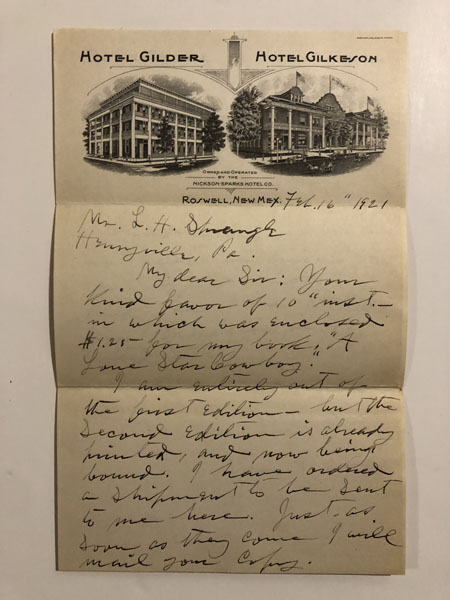 HOTEL GILDER
HOTEL GILKESON
OWNED AND OPERATED
BY THE
NICKSON-SPARKS HOTEL CO.
ROSWELL, NEW MEX. Feb. 16" 1921
Mr. L. H.
Henryville, Pa.
My dear Sir: Your
kind favor of 10" inst.—
in which was enclosed
$1.25 — for my book, "A
Lone Star Cowboy."
I am entirely out of
the first edition — but the
second edition is already
printed, and now being
bound. I have ordered
a shipment to be sent
to me here. Just as
soon as they come I will
mail your copy.